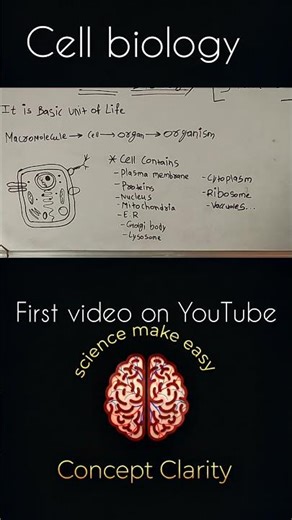 Cell biology
It is Basic unit of Life
Macromolecule → Cell → organ → organism
* Cell contains
- Plasma membrane
- Proteins
- Nucleus
- Mitochondria
- E.R
- Golgi body
- Lysosome
- Cytoplasm
- Ribosome
- Vacuoles...
First video on YouTube
science make easy
Concept Clarity